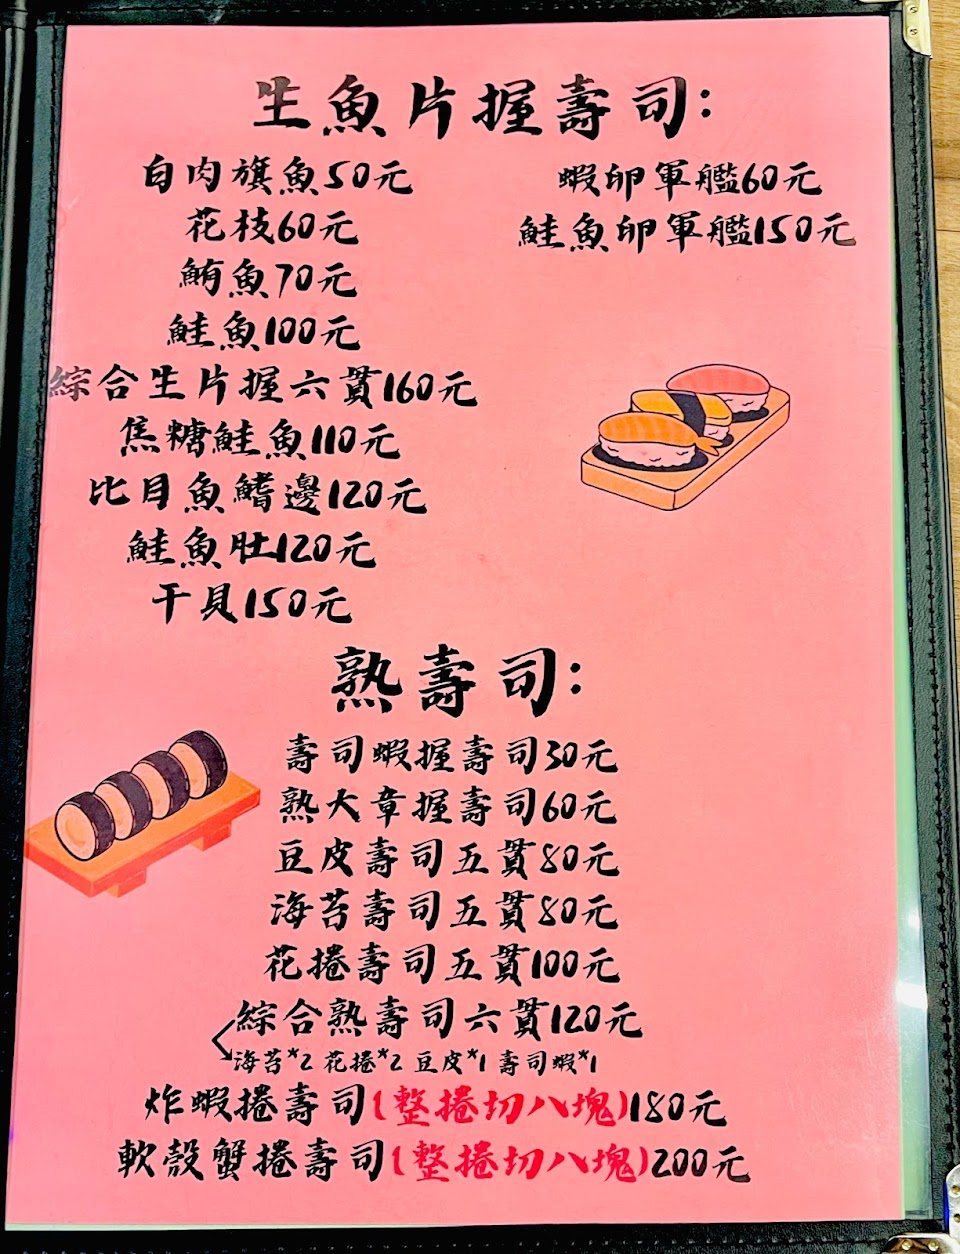 生魚片握壽司:
白肉旗魚50元
花枝60元
鮪魚70元
鮭魚100元
綜合生片握六貫160元
焦糖鮭魚110元
比目魚鰭邊120元
鮭魚肚120元
干貝150元
蝦卵軍艦60元
鮭魚卵軍艦150元
熟壽司:
壽司蝦握壽司30元
熟大章握壽司60元
豆皮壽司五貫80元
海苔壽司五貫80元
花捲壽司五貫100元
綜合熟壽司六貫120元
海苔*2 花捲*2 豆皮*1 壽司蝦*1
炸蝦捲壽司(整捲切八塊)180元
軟殼蟹捲壽司(整捲切八塊)200元